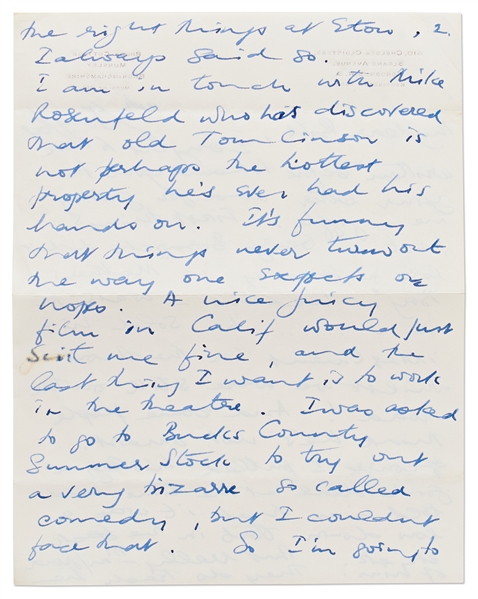 the right things at Eton, 2.
I always said so.
I am in touch with Mike
Rosenfeld who has discovered
that old Tom Cinson is
not perhaps the hottest
property he's ever had his
hands on. It's funny
that things never turn out
the way one expects or
hopes. A nice juicy
film in Calif would just
suit me fine, and the
last thing I want is to work
in the theatre. I was asked
to go to Bucks County
Summer Stock to try out
a very bizarre so called
comedy, but I couldn't
face that. So I'm going to